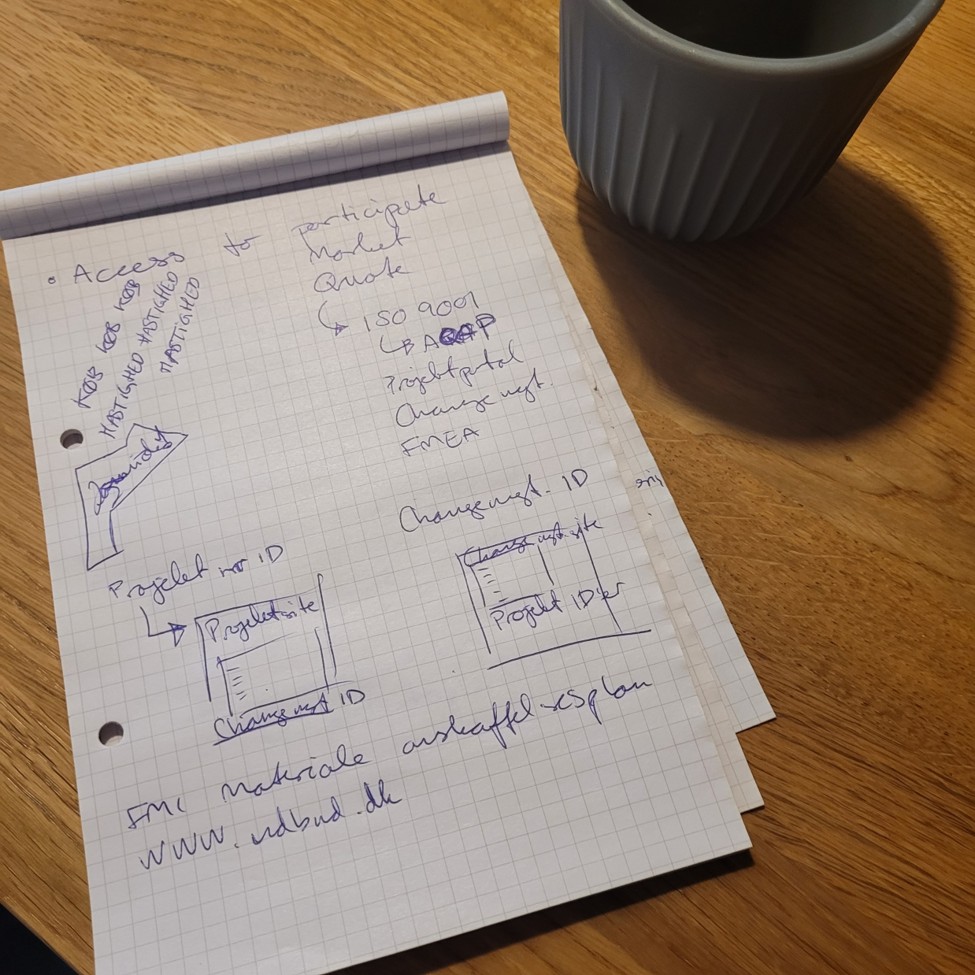 • Access to participate
Market
Quote
ISO 9001
AQAP
Projektportal
Change mgt.
FMEA
KØB KØB KØB
HASTIGHED HASTIGHED
HASTIGHED
Change mgt. ID
Change mgt. site
Projekt ID'er
Projekt ID
Projektsite
Change mgt ID
FMI Materiale anskaffelsesplan
www.udbud.dk